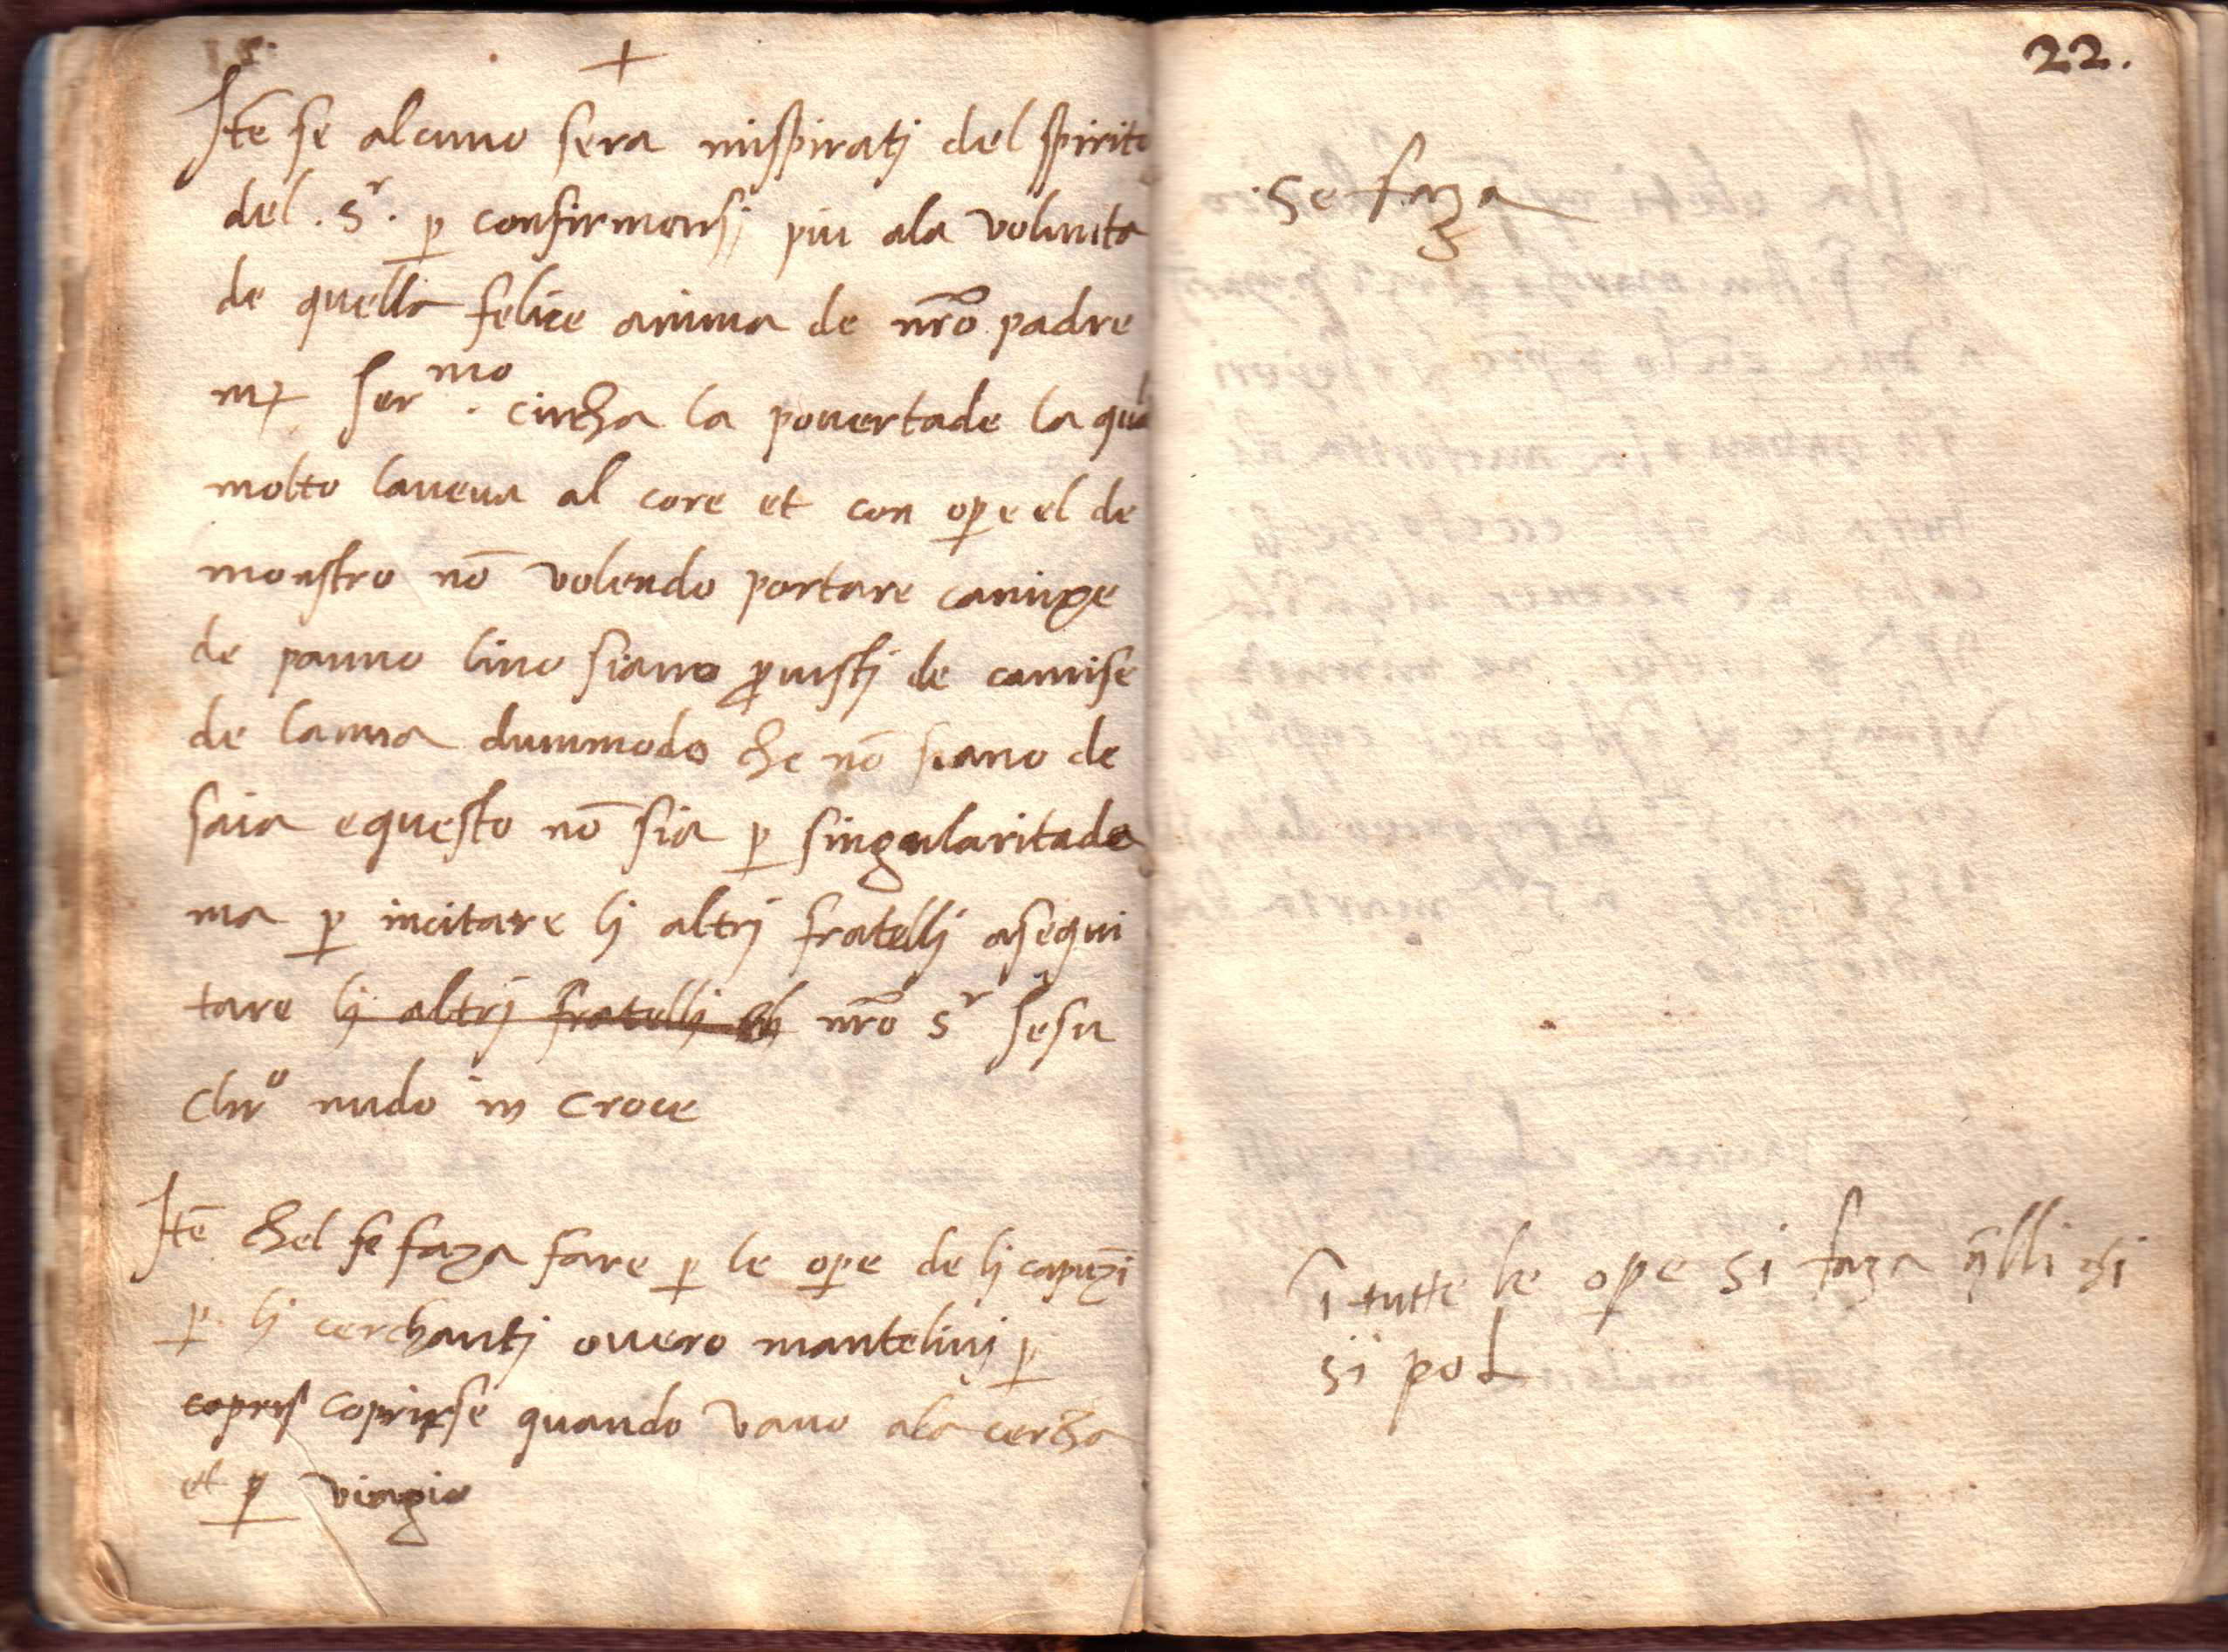 +
Itē se alcuno sera inispiratj del spirito
del . Sʳ . p confirmarsj piu ala volunta
de quella felice anima de nr̄o padre
mʒ Ser ᵐᵒ . circha la povertade la qual
molto laueua al core et con ope el de
monstro nō volendo portare camixe
de panno lino siano prouistj de camise
de lanna dummodo che nō siano de
saia e questo nō sia p singularitade
ma p incitare lj altrj fratellj asequi
tare lj altrj fratellj ch nr̄o sʳ Jesu
Chrᵒ nudo in Croce
Itē chel se faza fare p le ope de lj capuzi
p lj cerchantj ouero mantelinj p
coprirse quando vano ala cercha
et p viagio
22.
se faza
ī tutte le ope si faza q̄lli chi
si pol